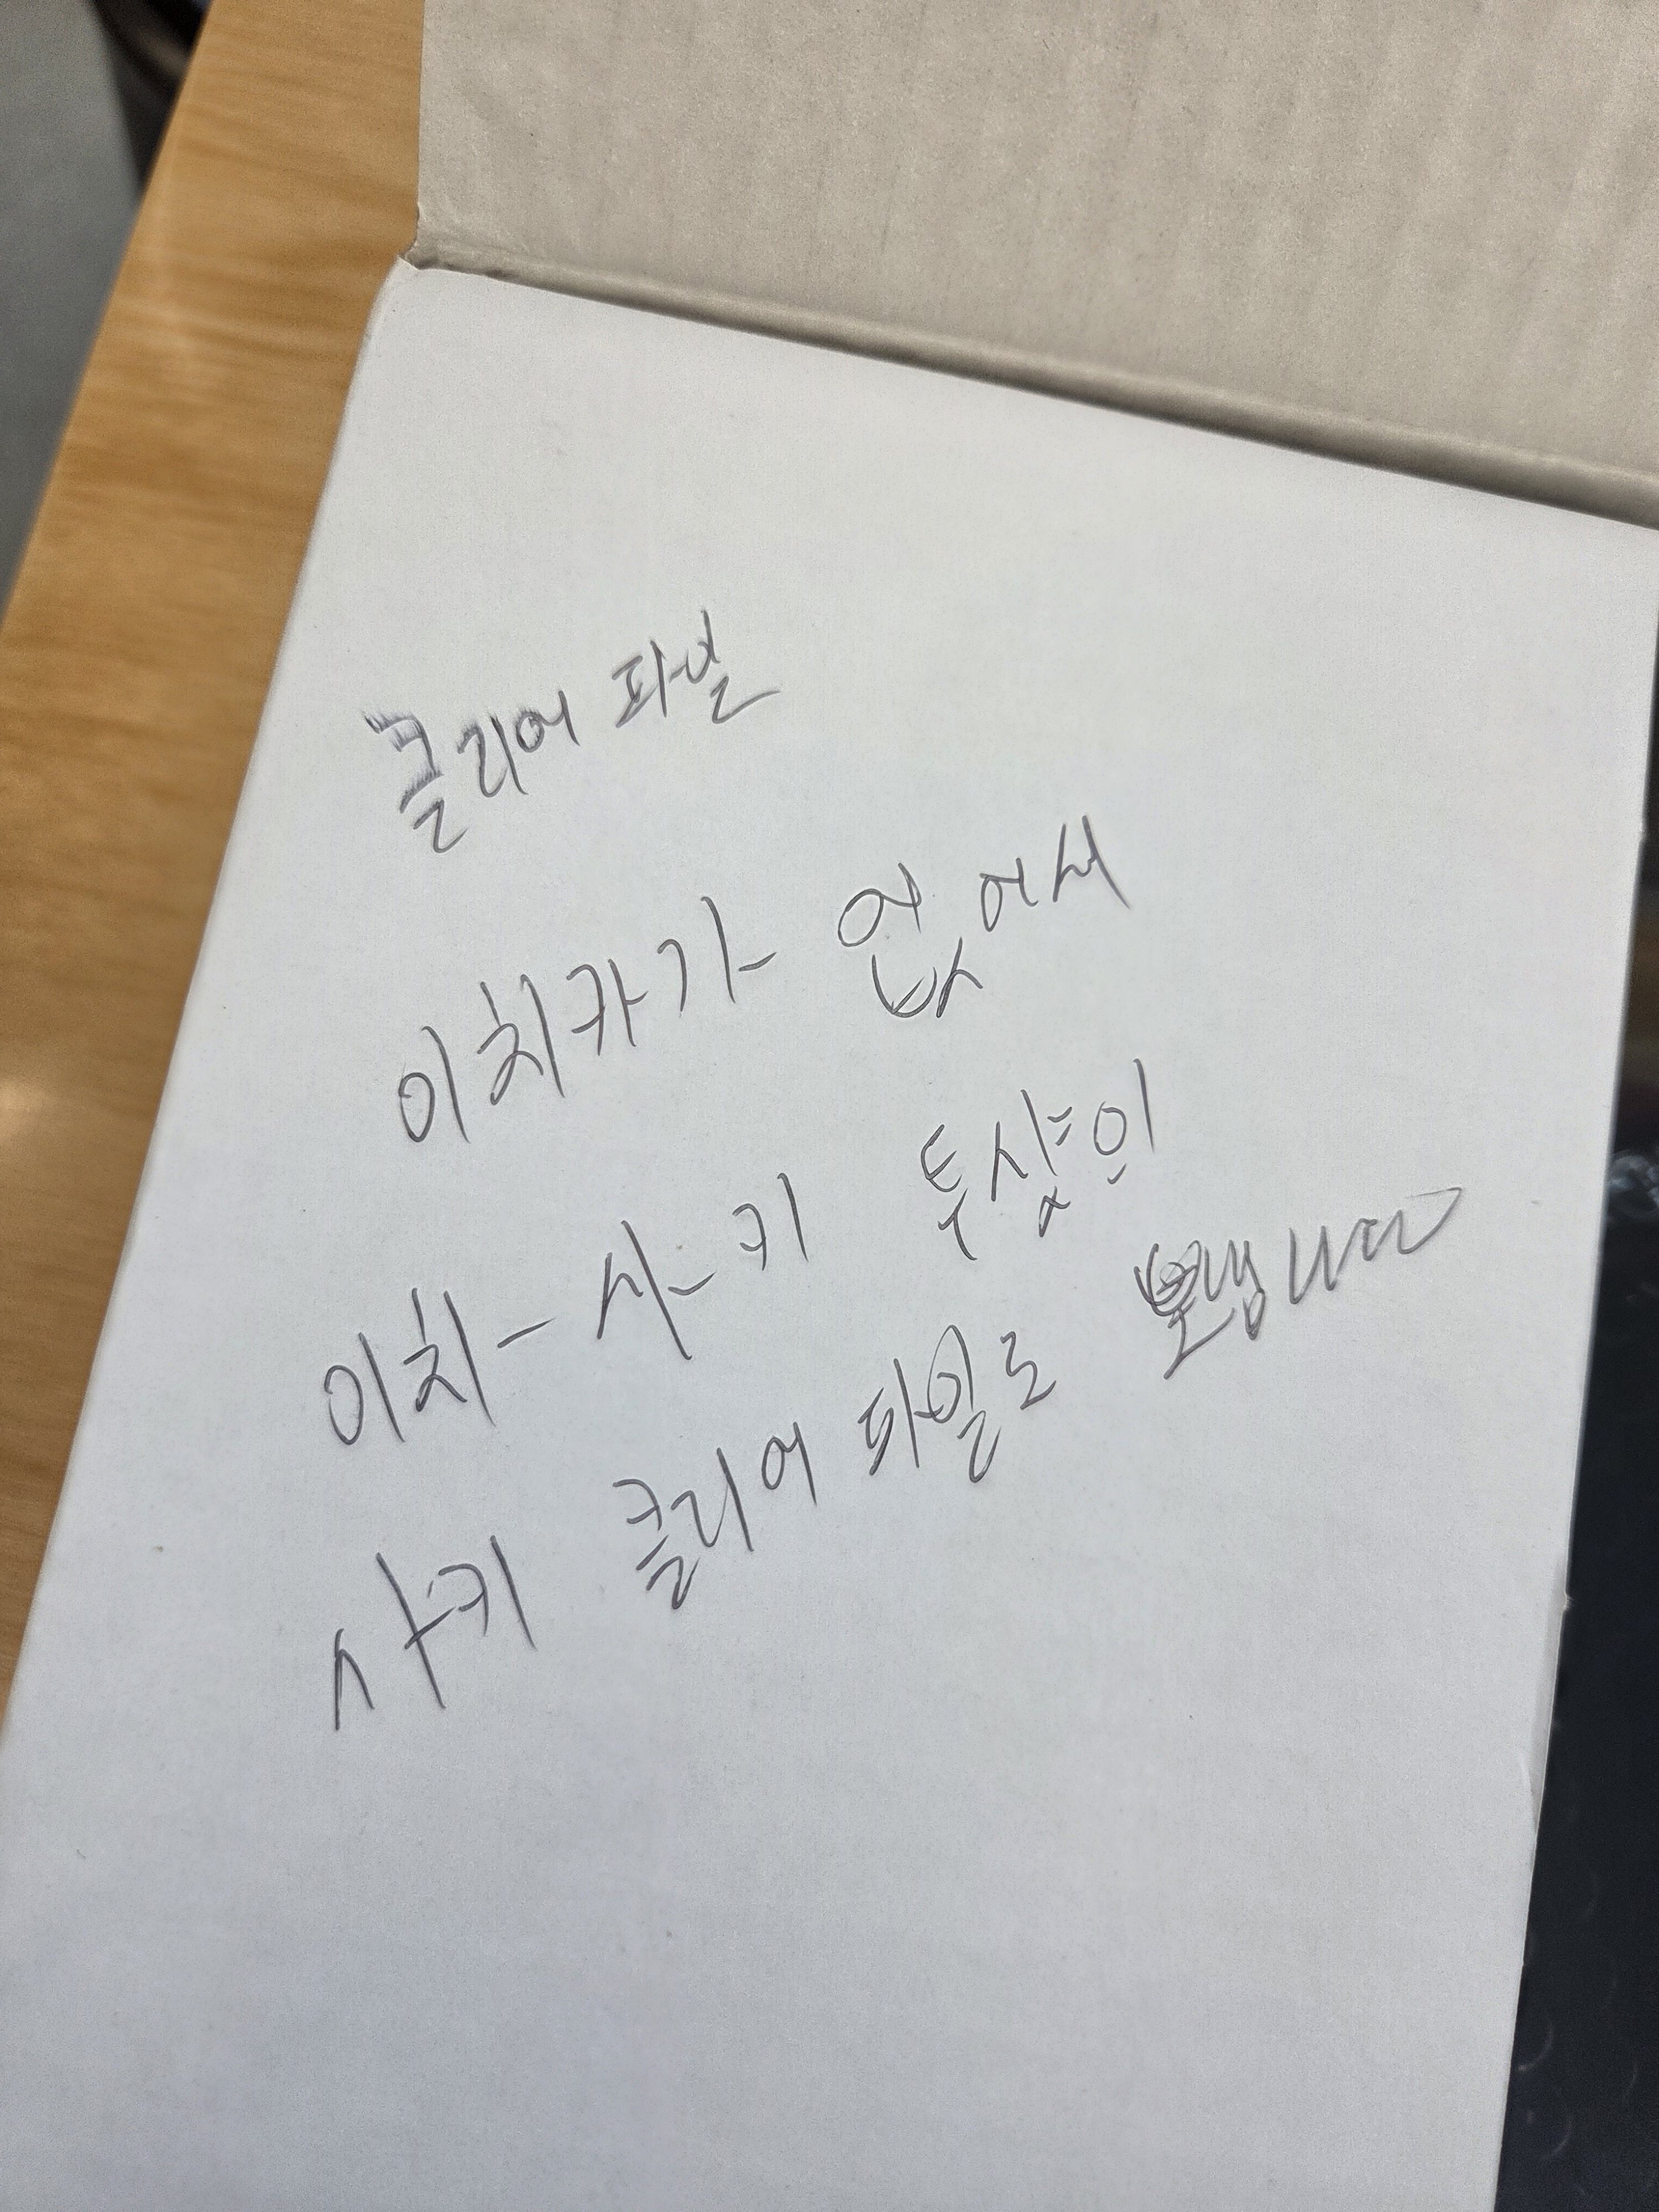 클리어 파일
이치카가 없어서
이치-사-키 투샷인
사키 클리어 파일로 보냅니다